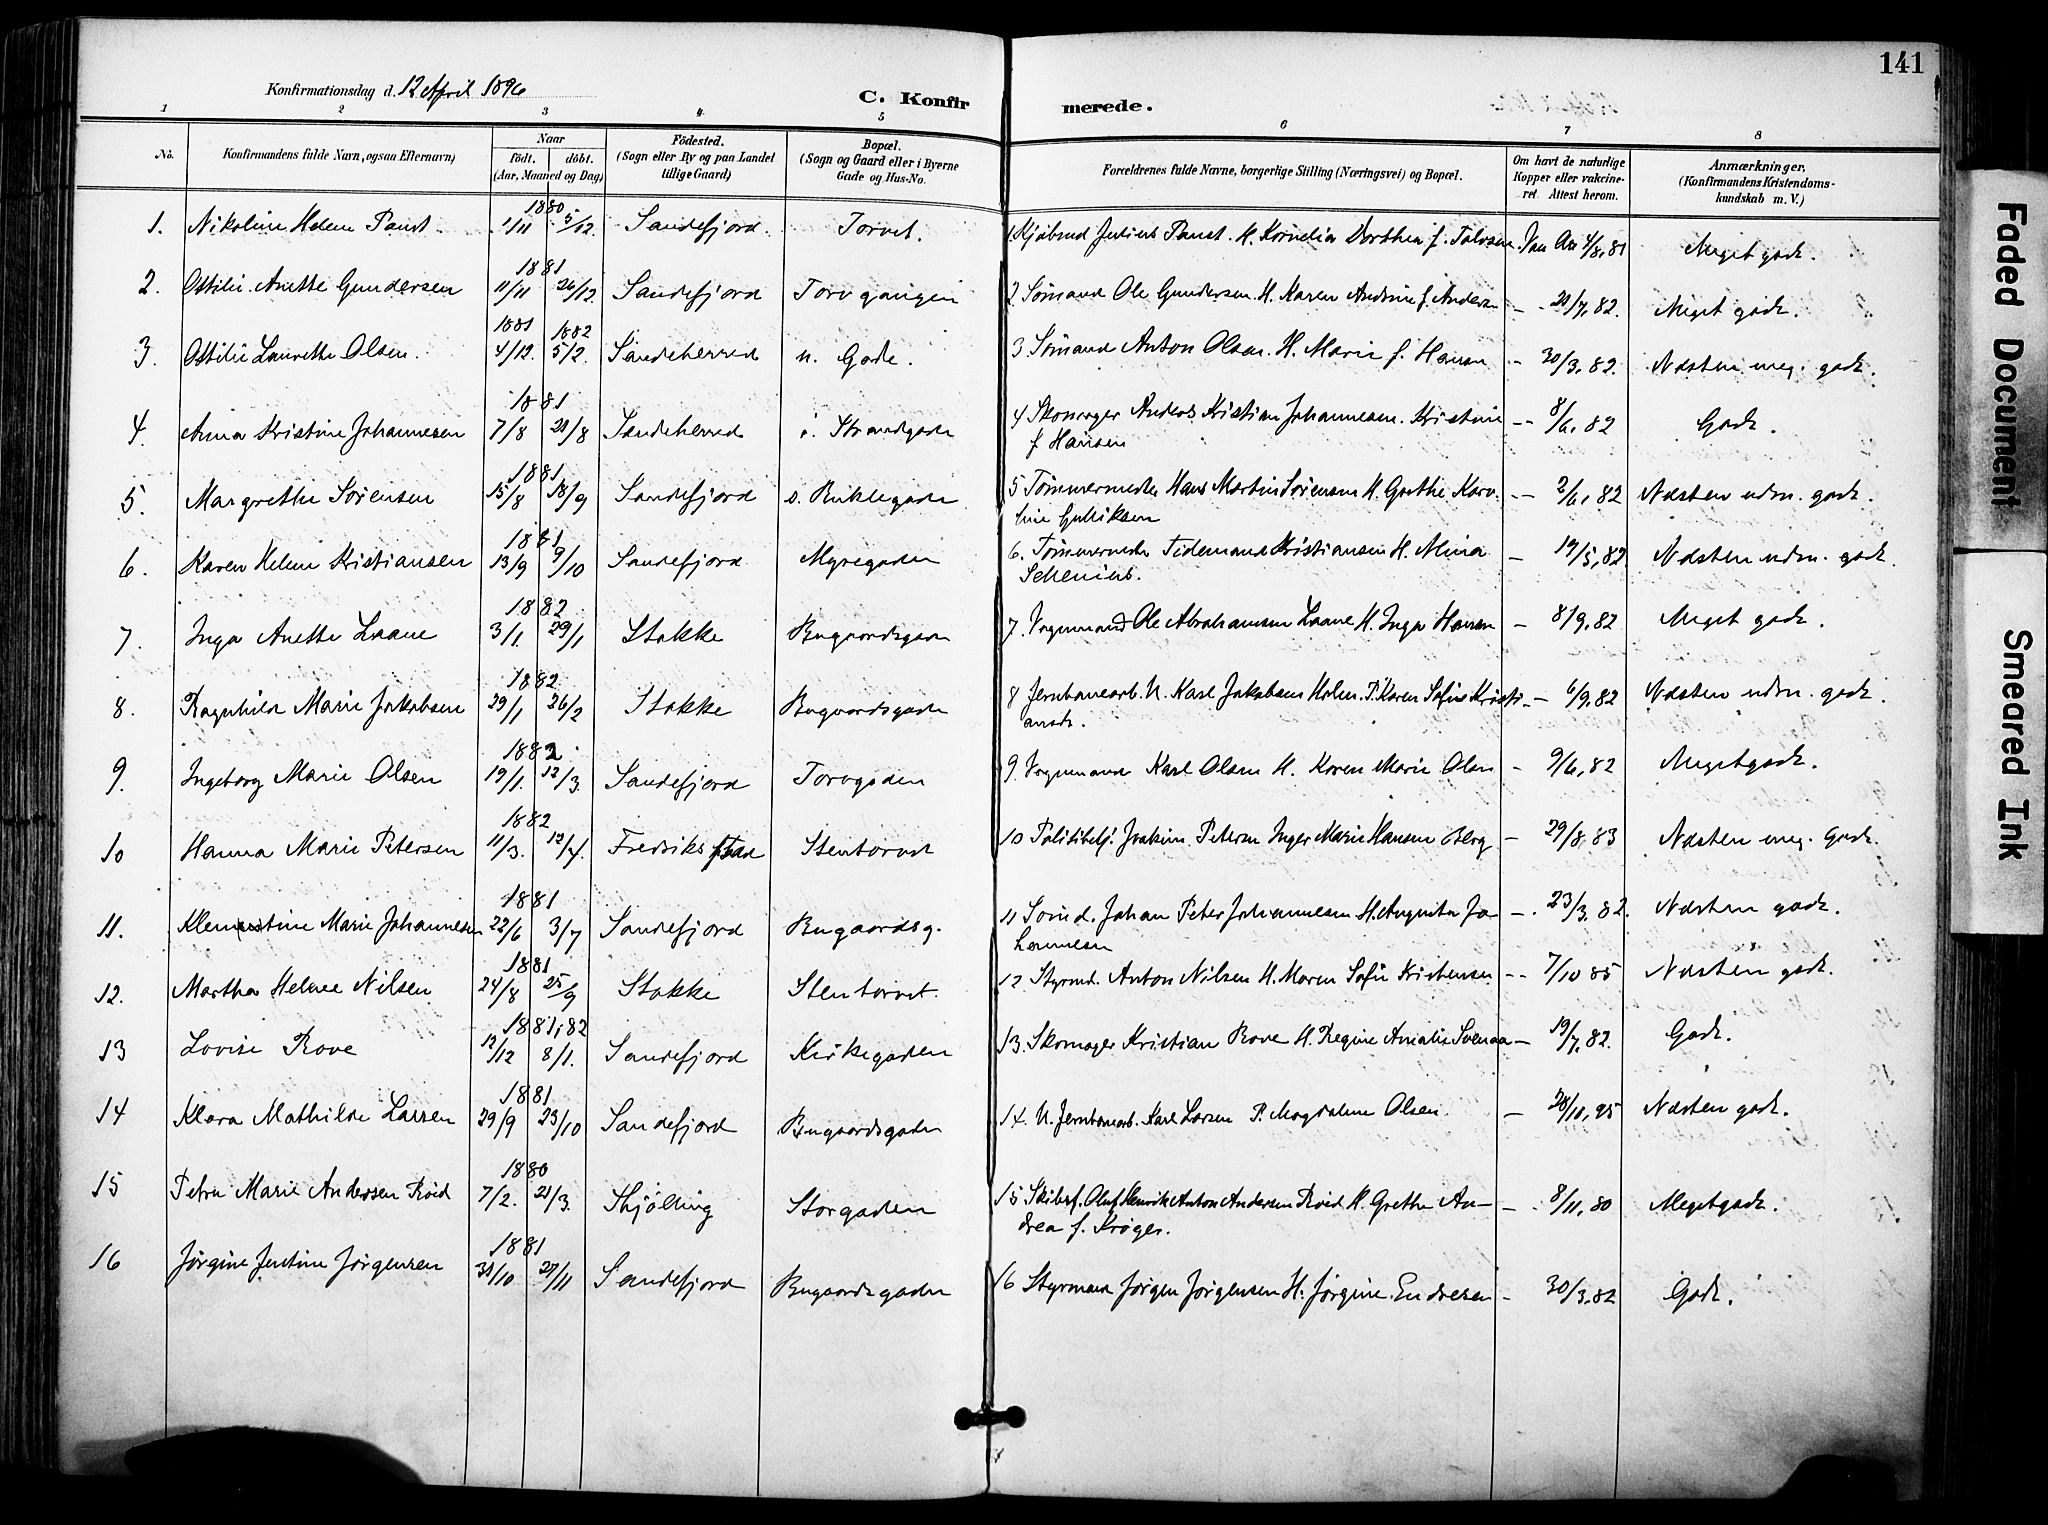 141
Konfirmationsdag d. 12 April 1896
C. Konfirmerede.
1 2 3 4 5 6 7 8
No. Konfirmandens fulde Navn, ogsaa Efternavn) Naar födt. döbt. (Aar, Maaned og Dag) Födested. (Sogn eller By og paa Landet tillige Gaard) Bopæl. (Sogn og Gaard eller i Byerne Gade og Hus-No. Forældrenes fulde Navne, borgerlige Stilling (Næringsvei) og Bopæl. Om havt de naturlige Kopper eller vakcineret. Attest herom. Anmærkninger, (Konfirmandens Kristendomskundskab m. V.)
1880
1. Nikoline Helene Paust. 1/11 5/12. Sandefjord. Torvet. 1. Kjøbmd Julius Paust. H. Kornelia Dorthea f. 4/8, 81 Meget godt.
1881
2. Ottilie Anette Gundersen 11/11 26/12. Sandefjord Torvgangen 2 Sømand Ole Gundersen H. Karen Andrine f. Andersen - 20/7, 82. Meget godt.
1881 1882
3. Ottilie Laurette Olsen. 4/12. 5/2. Sandeherred n. Gade. 3 Sømand Anton Olsen. H. Marie f. Hansen - 30/3, 82. Næsten meg. godt.
1881
4. Anna Kristine Johannesen 7/8 21/8 Sandeherred i. Strandgade 4 Skomager Anders Kristian Johannesen. Kristine f Hansen -- 8/6, 82 Godt.
1881
5. Margrethe Sørensen 15/8 18/9 Sandefjord s. Buklegaden 5 Tømmermester Hans Martin Sørensen H. Grethe Karoline Gulliksen -- 2/6, 82 Næsten udm. godt.
1881
6. Karen Helene Kristiansen 13/9 9/10 Sandefjord Myregaden 6. Tømmermester Tidemand Kristiansen H. Mina - 19/5, 82 Næsten udm. godt.
1882
7. Inga Anette Laane 3/1. 29/1 Stokke Bugaardsgaden 7. Vognmand Ole Abrahamsen Laane H. Inga Hansen - 8/9, 82 Meget godt.
1882
8. Ragnhild Marie Jakobsen 29/1 26/2 Stokke Bugaardsgaden 8 Jernbanearb. U. Karl Jakobsen Holm. P. Karen Sofie Kristiansdt. - 6/9, 82 Næsten udm. godt.
1882
9. Ingeborg Marie Olsen 19/1. 12/3. Sandefjord Torvgaden 9. Vognmand Karl Olsen H. Karen Marie Olsen - 9/6, 82 Meget godt.
1882
10 Hanna Marie Petersen 11/3. 12/4. Fredriksstad Stentorvet 10 Politibtj. Joakim Petersen Inger Marie Hansen Berg - 29/8, 83 Næsten meg. Godt.
1881
11. Klementine Marie Johannesen 22/6 3/7 Sandefjord Bugaardsg. 11 Sømd. Johan Peter Johannesen H. Augusta Johannesen -. 23/3, 82. Næsten godt.
1881
12. Martha Helene Nilsen 24/8 25/9 Stokke Stentorvet. 12. Styrmd. Anton Nilsen H. Maren Sofie Kristensen -- 7/10 85 Næsten godt.
1881, 82
13 Lovise Rove 12/12 8/1. Sandefjord Kirkegaden 13. Skomager Kristian Rove H. Regine Amalie Svensen - 19/7, 82. Godt.
1881
14 Klara Mathilde Larsen 29/9 23/10 Sandefjord Bugaardsgaden 14. U. Jernbanearb. Karl Larsen P. Magdalene Olsen. - 28/11, 95 Næsten godt.
1880
15 Petra Marie Andersen Roed 7/2. 21/3. Skjölling Storgaden 15 Skibsf. Oluf Henrik Anton Andersen Roed H. Grethe Andrea f. Krøger. -. 8/11, 80 Meget godt.
1881
16 Jørgine Justine Jørgensen 31/10 27/11 Sandefjord Bugaardsgaden 16 Styrmand Jørgen Jørgensen H. Jørgine Endresen - 30/3, 82 Godt.
Faded Document
Smeared Ink